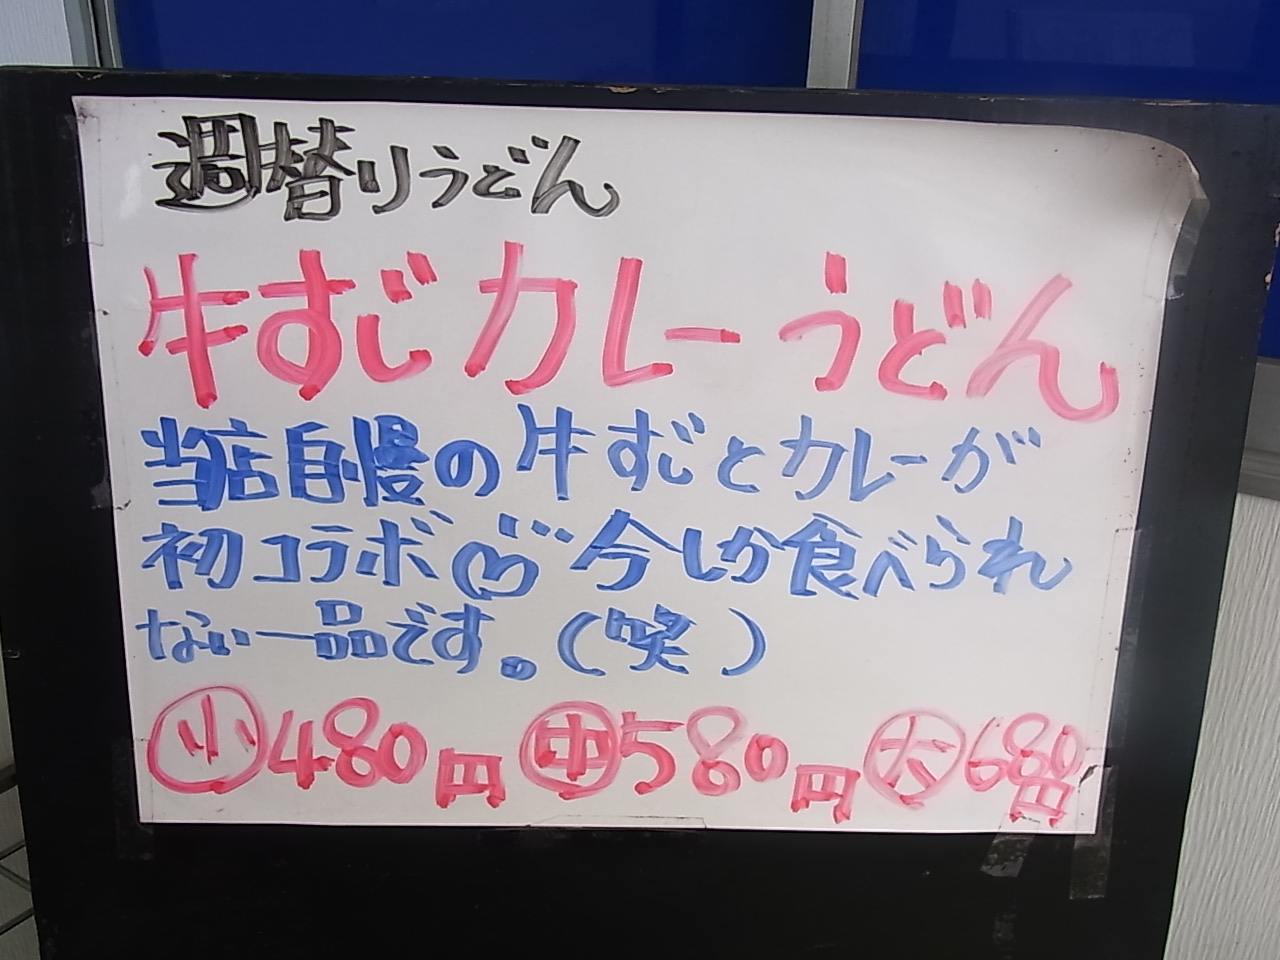 週替りうどん
牛すじカレーうどん
当店自慢の牛すじとカレーが
初コラボ♡今しか食べられ
ない一品です。(笑)
小480円 中580円 大680円